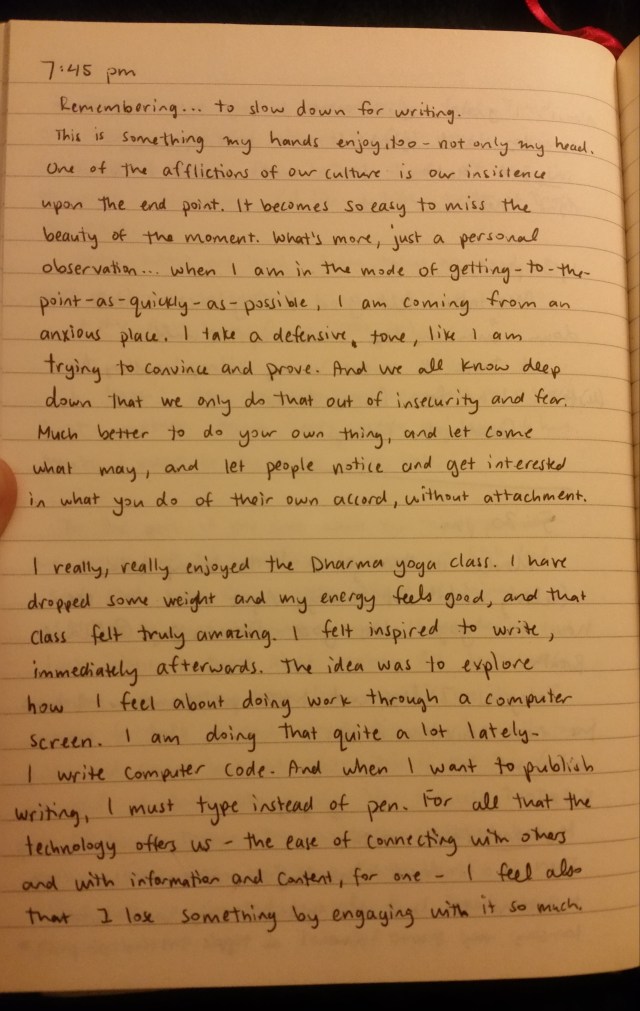 7:45 pm
Remembering... to slow down for writing.
This is something my hands enjoy, too - not only my head.
One of the afflictions of our culture is our insistence
upon the end point. It becomes so easy to miss the
beauty of the moment. What's more, just a personal
observation... when I am in the mode of getting-to-the-
point-as-quickly-as-possible, I am coming from an
anxious place. I take a defensive, tone, like I am
trying to convince and prove. And we all know deep
down that we only do that out of insecurity and fear.
Much better to do your own thing, and let come
what may, and let people notice and get interested
in what you do of their own accord, without attachment.
I really, really enjoyed the Dharma yoga class. I have
dropped some weight and my energy feels good, and that
class felt truly amazing. I felt inspired to write,
immediately afterwards. The idea was to explore
how I feel about doing work through a computer
screen. I am doing that quite a lot lately-
I write computer code. And when I want to publish
writing, I must type instead of pen. For all that the
technology offers us - the ease of connecting with others
and with information and content, for one - I feel also
that I lose something by engaging with it so much.